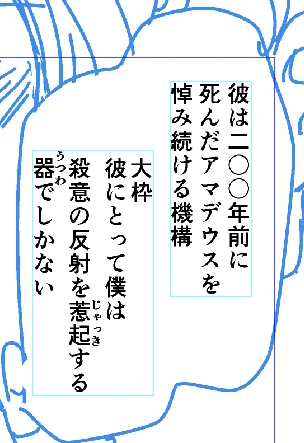 彼は二〇〇年前に
死んだアマデウスを
悼み続ける機構
大枠
彼にとって僕は
殺意の反射を惹起する
器でしかない
じゃっき
うつわ